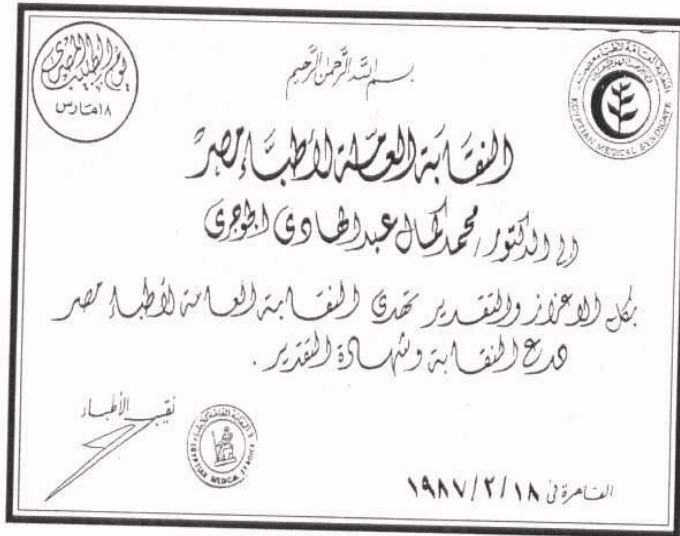 يوم الطبيب المصرى
١٨ مارس
بسم الله الرحمن الرحيم
النقابة العامة لأطباء مصر
EGYPTIAN MEDICAL SYNDICATE
النقابة العامة لأطباء مصر
إلى الدكتور/ محمد كمال عبد الهادى الجوجرى
بكل الاعزاز والتقدير تهدى النقابة العامة لأطباء مصر
درع النقابة وشهادة التقدير .
نقيب الأطباء
EGYPTIAN MEDICAL SYNDICA
القاهرة فى ١٩٨٧/٣/١٨